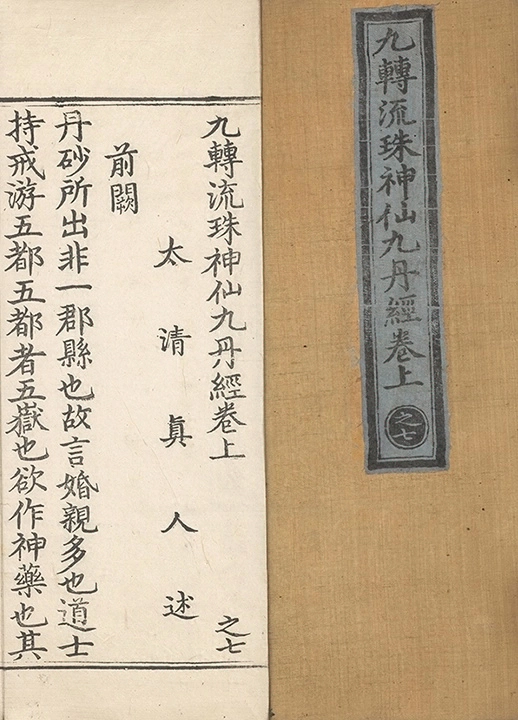 九轉流珠神仙九丹經卷上
之七
九轉流珠神仙九丹經卷上 之七
太清真人述
前闕
丹砂所出非一郡縣也故言婚親多也道士
持戒游五都五都者五嶽也欲作神藥也其